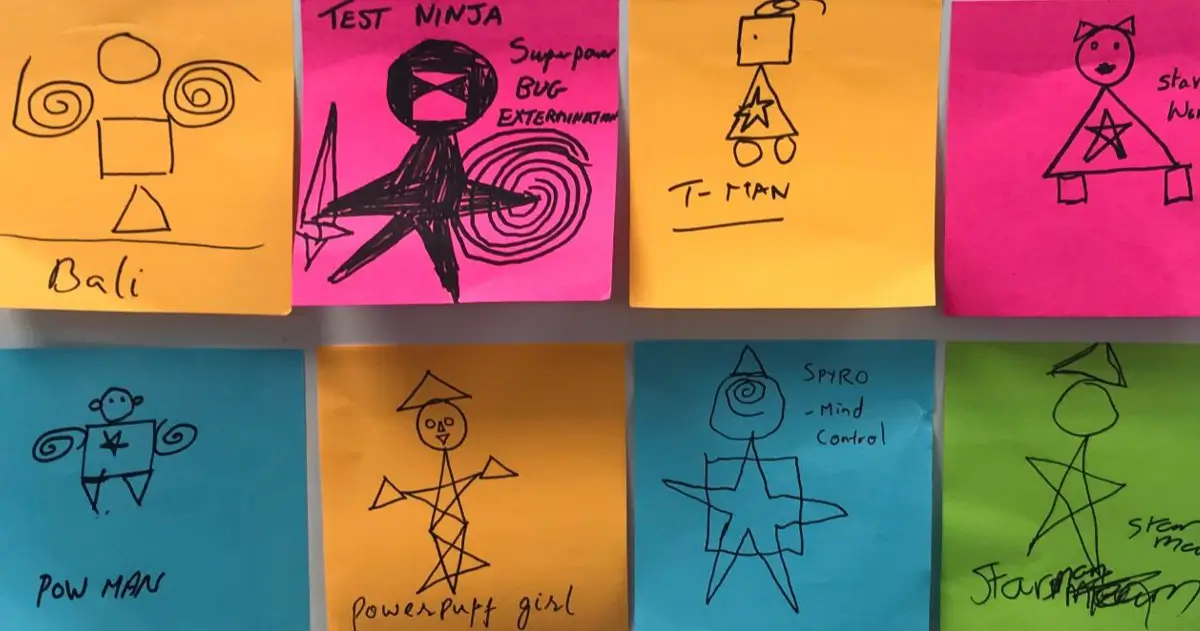 Bali
TEST NINJA
Superpower
BUG
EXTERMINATION
T-MAN
Star
POW MAN
powerpuff girl
SPYRO
- Mind
Control
Starman